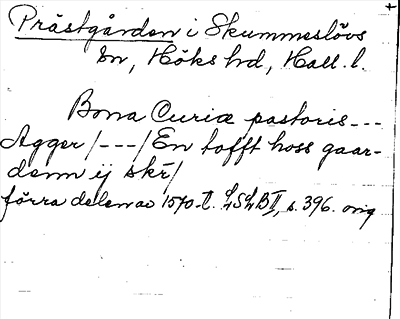 Prästgården i Skummeslövs
sn, Höks hd, Hall. l.
Bona Curiæ pastoris ---
Agger /---/ En tofft hoss gaar-
denn ij skr/
förra delen av 1570-t. LSLB II, s. 396. orig